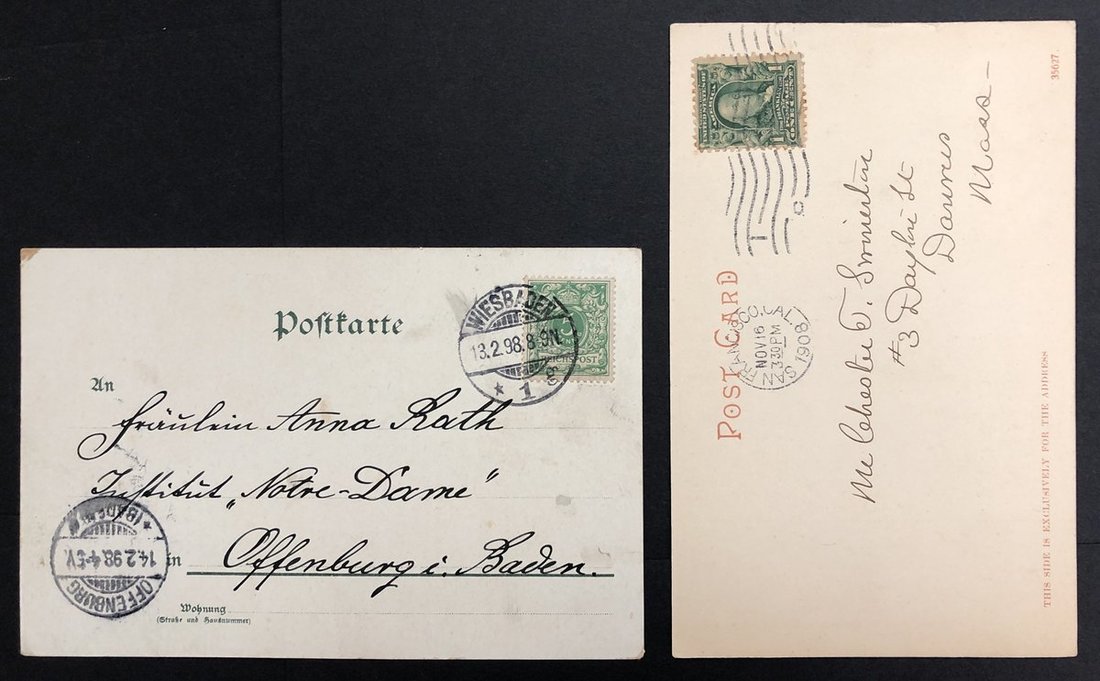 Postkarte
WIESBADEN
13.2.98.8-9N.
* 1
5
REICHSPOST
An
Fräulein Anna Rath
Institut „Notre-Dame"
in Offenburg i. Baden.
Wohnung
(Straße und Hausnummer)
OFFENBURG
14.2.98.4-5V.
* (BADEN) *
1 1
ONE CENT
POST CARD
SAN FRANCISCO, CAL.
NOV 16
3 30 PM
1908
Chester T.
#3 St
Danvers
Mass
THIS SIDE IS EXCLUSIVELY FOR THE ADDRESS
35627.